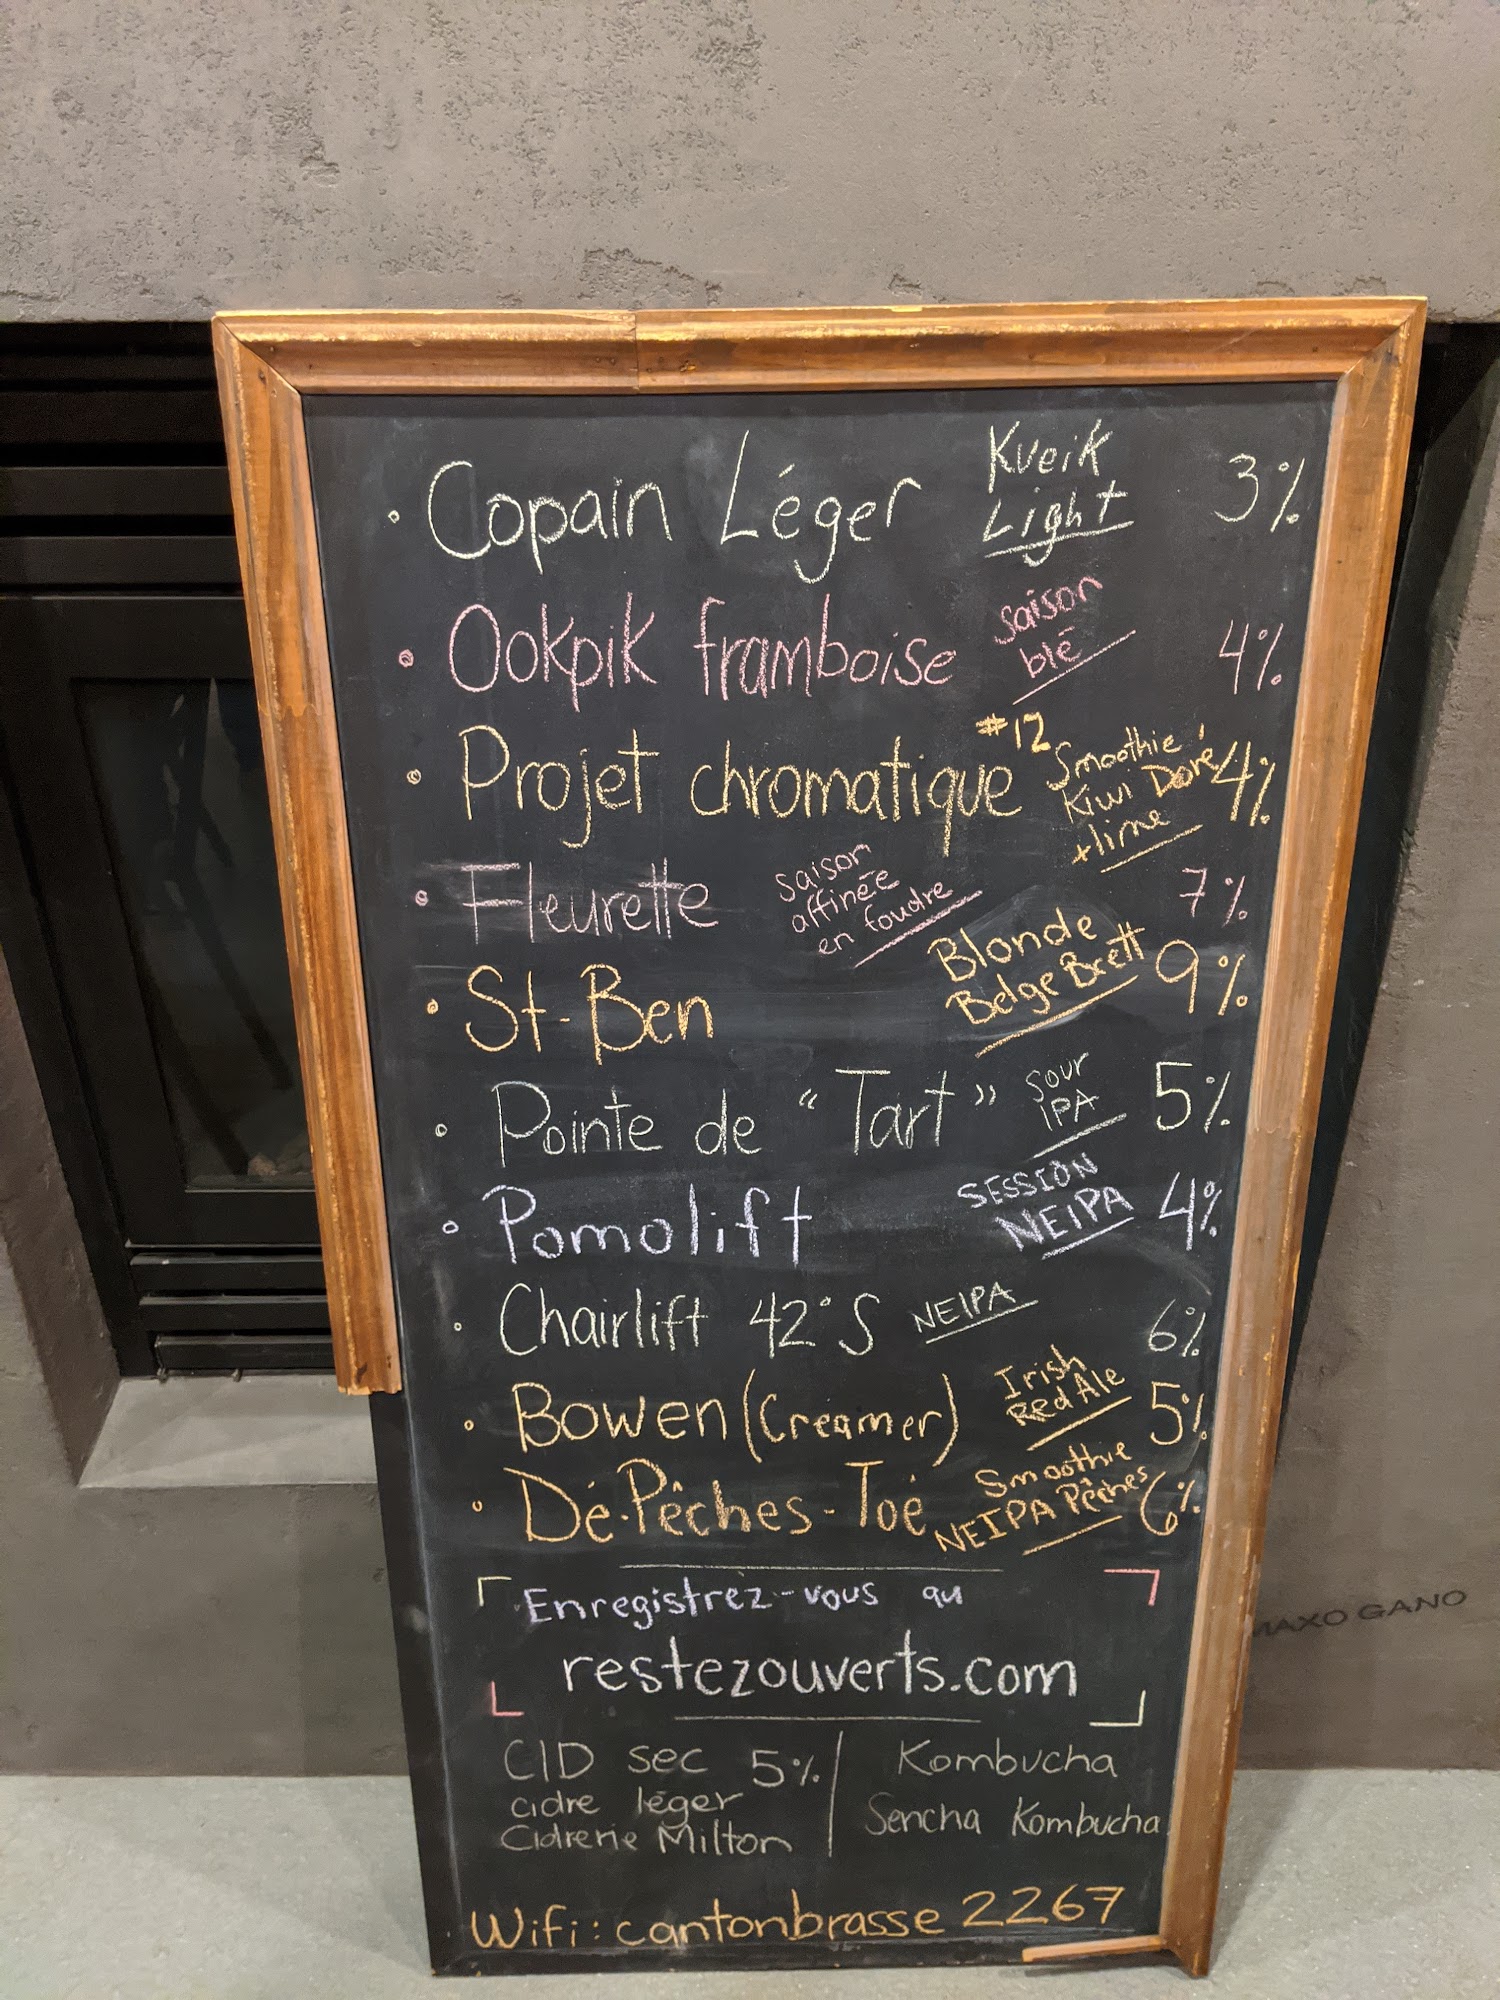 Copain Léger Kveik Light 3%
Ookpik framboise saison blé 4%
Projet chromatique #12 Smoothie Kiwi Doré + lime 4%
Fleurette saison affinée en foudre 7%
St-Ben Blonde Belge Brett 9%
Pointe de "Tart" Sour IPA 5%
Pomolift SESSION NEIPA 4%
Chairlift 42°S NEIPA 6%
Bowen (Creamer) Irish Red Ale 5%
Dé-Pêches-Toé Smoothie NEIPA Pêches 6%
Enregistrez-vous au
restezouverts.com
CID sec 5%
cidre léger
Cidrerie Milton
Kombucha
Sencha Kombucha
Wifi: cantonbrasse 2267
MAXO GANO